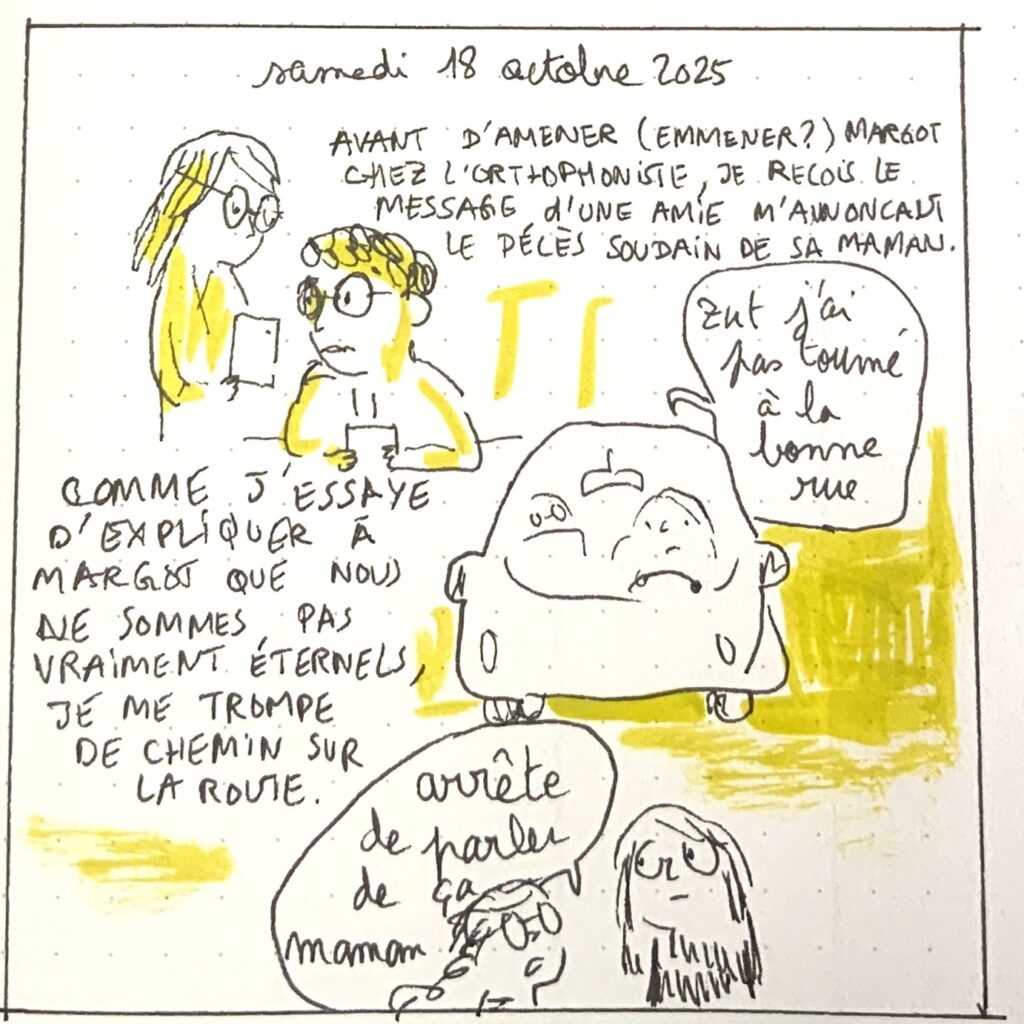 samedi 18 octobre 2025
AVANT D'AMENER (EMMENER?) MARGOT
CHEZ L'ORTHOPHONISTE, JE RECOIS LE
MESSAGE d'UNE AMIE M'ANNONCANT
LE DÉCÈS SOUDAIN DE SA MAMAN.
zut j'ai
pas tourné
à la
bonne
rue
COMME J'ESSAYE
D'EXPLIQUER À
MARGOT QUE NOUS
NE SOMMES PAS
VRAIMENT ÉTERNELS,
JE ME TROMPE
DE CHEMIN SUR
LA ROUTE.
arrête
de parler
de ça
maman